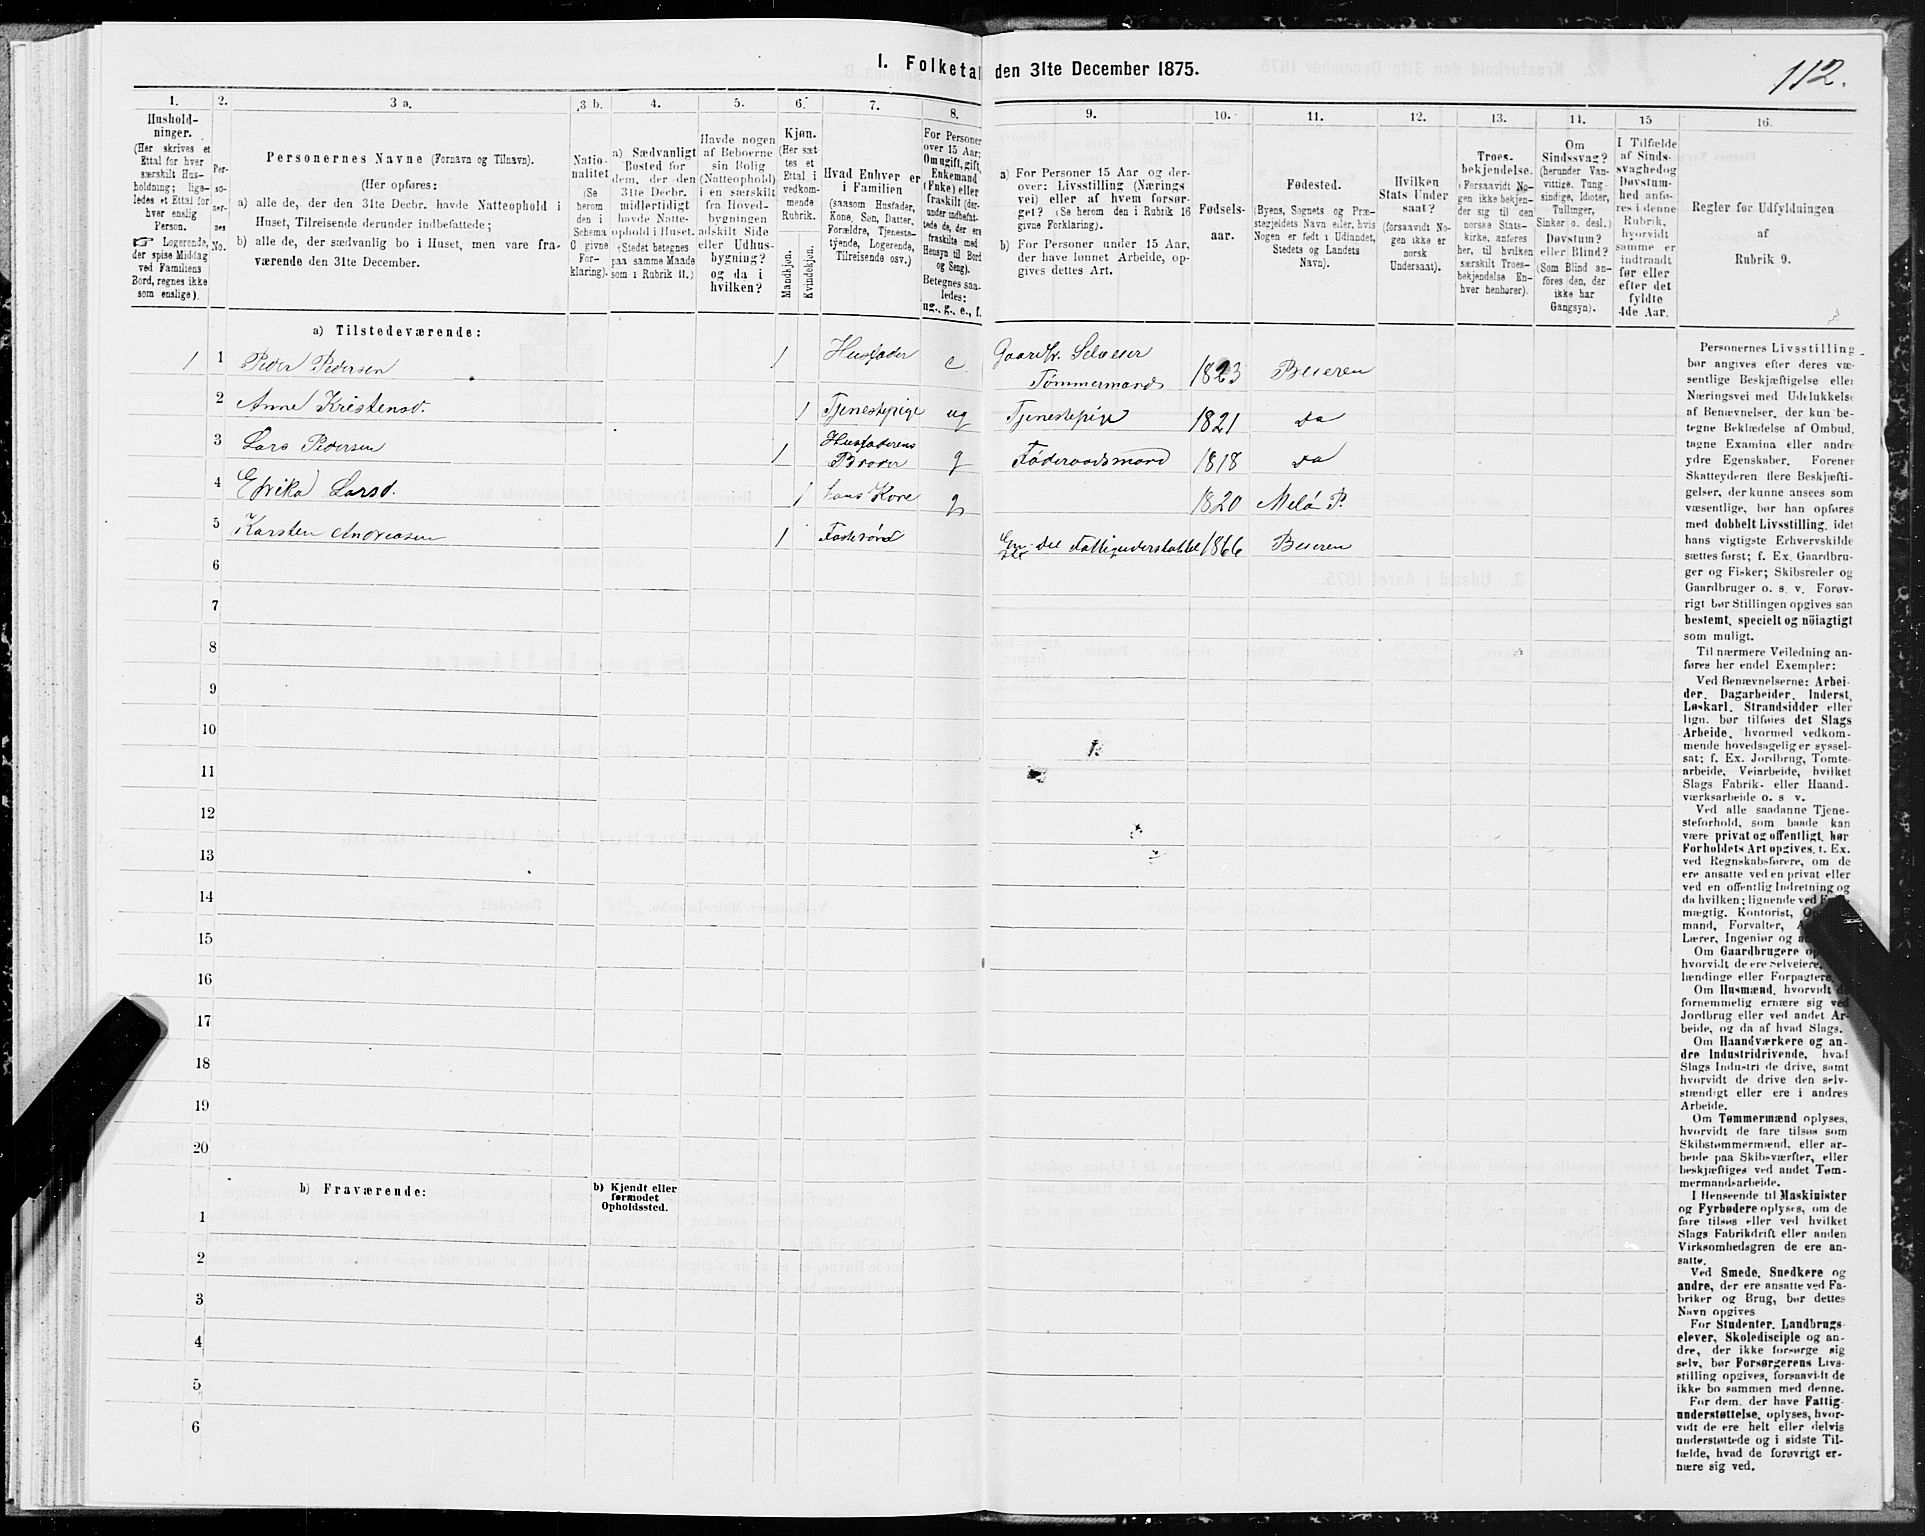 1. Folketal den 31te December 1875.
112.
1.
Hushold-
ninger.
(Her skrives et
Ettal for hver
særskilt Hus-
holdning; lige-
ledes et Ettal for
hver enslig
Person.
☞ Logerende,
der spise Middag
ved Familiens
Bord, regnes ikke
som enslige).
2.
Per-
so-
ner-
nes
No.
3 a.
Personernes Navne (Fornavn og Tilnavn).
(Her opføres:
a) alle de, der den 31te Decbr. havde Natteophold i
Huset, Tilreisende derunder indbefattede;
b) alle de, der sædvanlig bo i Huset, men vare fra-
værende den 31te December.
3 b.
Natio-
nalitet
(Se
herom
den i
Schema
C givne
For-
klaring).
4.
a) Sædvanligt
Bosted for
dem, der den
31te Decbr.
midlertidigt
havde Natte-
ophold i Huset.
(Stedet betegnes
paa samme Maade
som i Rubrik 11.)
5.
Havde nogen
af Beboerne
sin Bolig
(Natteophold)
i en særskilt
fra Hoved-
bygningen
adskilt Side
eller Udhus-
bygning?
og da i
hvilken?
6.
Kjøn.
(Her sæt-
tes et
Ettal i
vedkom-
mende
Rubrik.
Mandkjøn.
Kvindekjøn.
7.
Hvad Enhver er
i Familien
(saasom Husfader,
Kone, Søn, Datter,
Forældre, Tjeneste-
tjende, Logerende,
Tilreisende osv.)
8.
For Personer
over 15 Aar:
Om ugift, gift,
Enkemand
(Enke) eller
fraskilt (der-
under indbefat-
tede de, der ere
fraskilte med
Hensyn til Bord
og Seng).
Betegnes saa-
ledes:
ug., g., e., f.
9.
a) For Personer 15 Aar og der-
over: Livsstilling (Nærings
vei) eller af hvem forsør-
get? (Se herom den i Rubrik 16
givne Forklaring).
b) For Personer under 15 Aar,
der have lønnet Arbeide, op-
gives dettes Art.
10.
Fødsels-
aar.
11.
Fødested.
(Byens, Sognets og Præ-
stegjeldets Navn eller, hvis
Nogen er født i Udlandet,
Stedets og Landets
Navn).
12.
Hvilken
Stats Under
saat?
(forsaavidt No-
gen ikke er
norsk
Undersaat).
13.
Troes-
bekjendelse.
(Forsaavidt No-
gen ikke bekjen-
der sig til den
norske Stats-
kirke, anføres
her, til hvilken
særskilt Troes-
bekjendelse En-
hver henhører).
14.
Om
Sindssvag?
(herunder Van-
vittige, Tung-
sindige, Idioter,
Tullinger,
Sinker o. desl.)
Døvstum?
eller Blind?
(Som Blind an-
føres den, der
ikke har
Gangsyn).
15
I Tilfælde
af Sinds-
svaghed og
Døvstum-
hed anfø-
res i denne
Rubrik,
hvorvidt
samme er
indtraadt
før eller
efter det
fyldte
4de Aar.
16.
Regler for Udfyldningen
af
Rubrik 9.
a) Tilstedeværende:
1 1 Peder Pedersen 1 Husfader e Gaardbr. Selveier
Tømmermand 1823 Beieren
2 Anne Kristensd. 1 Tjenestepige ug Tjenestepige 1821 Da
3 Lars Pedersen 1 Husfaderens
Broder g Føderaadsmand 1818 Da
4 Efrika Larsd. 1 hans Kone g 1820 Melø P.
5 Karsten Andreasen 1 Fostersøn Fattigunderstøttet 1866 Beieren
6
7
8
9
10
11
12
13
14
15
16
17
18
19
20
b) Fraværende:
b) Kjendt eller
formodet
Opholdssted.
1
2
3
4
5
6
Personernes Livsstilling
bør angives efter deres væ-
sentlige Beskjæftigelse eller
Næringsvei med Udelukkelse
af Benævnelser, der kun be-
tegne Beklædelse af Ombud,
tagne Examina eller andre
ydre Egenskaber. Forener
Skatteyderen flere Beskjæfti-
gelser, der kunne ansees som
væsentlige, bør han opføres
med dobbelt Livsstilling, idet
hans vigtigste Erhvervskilde
sættes først; f. Ex. Gaardbru-
ger og Fisker; Skibsreder og
Gaardbruger o. s. v. Forøv-
rigt bør Stillingen opgives saa
bestemt, specielt og nöiagtigt
som muligt.
Til nærmere Veiledning an-
føres her endel Exempler:
Ved Benævnelserne: Arbei-
der, Dagarbeider, Inderst,
Løskarl, Strandsidder eller
lign. bør tilføies det Slags
Arbeide, hvormed vedkom-
mende hovedsagelig er syssel-
sat; f. Ex. Jordbrug, Tomte-
arbeide, Veiarbeide, hvilket
Slags Fabrik- eller Haand-
værksarbeide o. s v.
Ved alle saadanne Tjene-
steforhold, som baade kan
være privat og offentligt, bør
Forholdets Art opgives, f. Ex.
ved Regnskabsførere, om de
ere ansatte ved en privat eller
ved en offentlig Indretning og
da hvilken; lignende ved
mægtig, Kontorist,
mand, Forvalter,
Lærer, Ingeniør og
Om Gaardbrugere
hvorvidt de ere Selveiere,
lændinge eller Forpagtere.
Om Husmænd, hvorvidt de
fornemmelig ernære sig ved
Jordbrug eller ved andet Ar-
beide, og da af hvad Slags.
Om Haandværkere og an-
dre Industridrivende, hvad
Slags Industri de drive, samt
hvorvidt de drive den selv-
stændigt eller ere i andres
Arbeide.
Om Tømmermænd oplyses,
hvorvidt de fare tilsøs som
Skibstømmermænd, eller ar-
beide paa Skibsværfter, eller
beskjæftiges ved andet Tøm-
mermandsarbeide.
I Henseende til Maskinister
og Fyrbødere oplyses, om de
fare tilsøs eller ved hvilket
Slags Fabrikdrift eller anden
Virksomhedsgren de ere an-
satte.
Ved Smede, Snedkere og
andre, der ere ansatte ved Fa-
briker og Brug, bør dettes
Navn opgives
For Studenter, Landbrugs-
elever, Skoledisciple og an-
dre, der ikke forsørge sig
selv, bør Forsørgerens Livs-
stilling opgives, forsaavidt de
ikke bo sammen med denne.
For dem, der have Fattig-
understøttelse, oplyses, hvor-
vidt de ere helt eller delvis
understøttede og i sidste Til-
fælde, hvad de forøvrigt er-
nære sig ved.